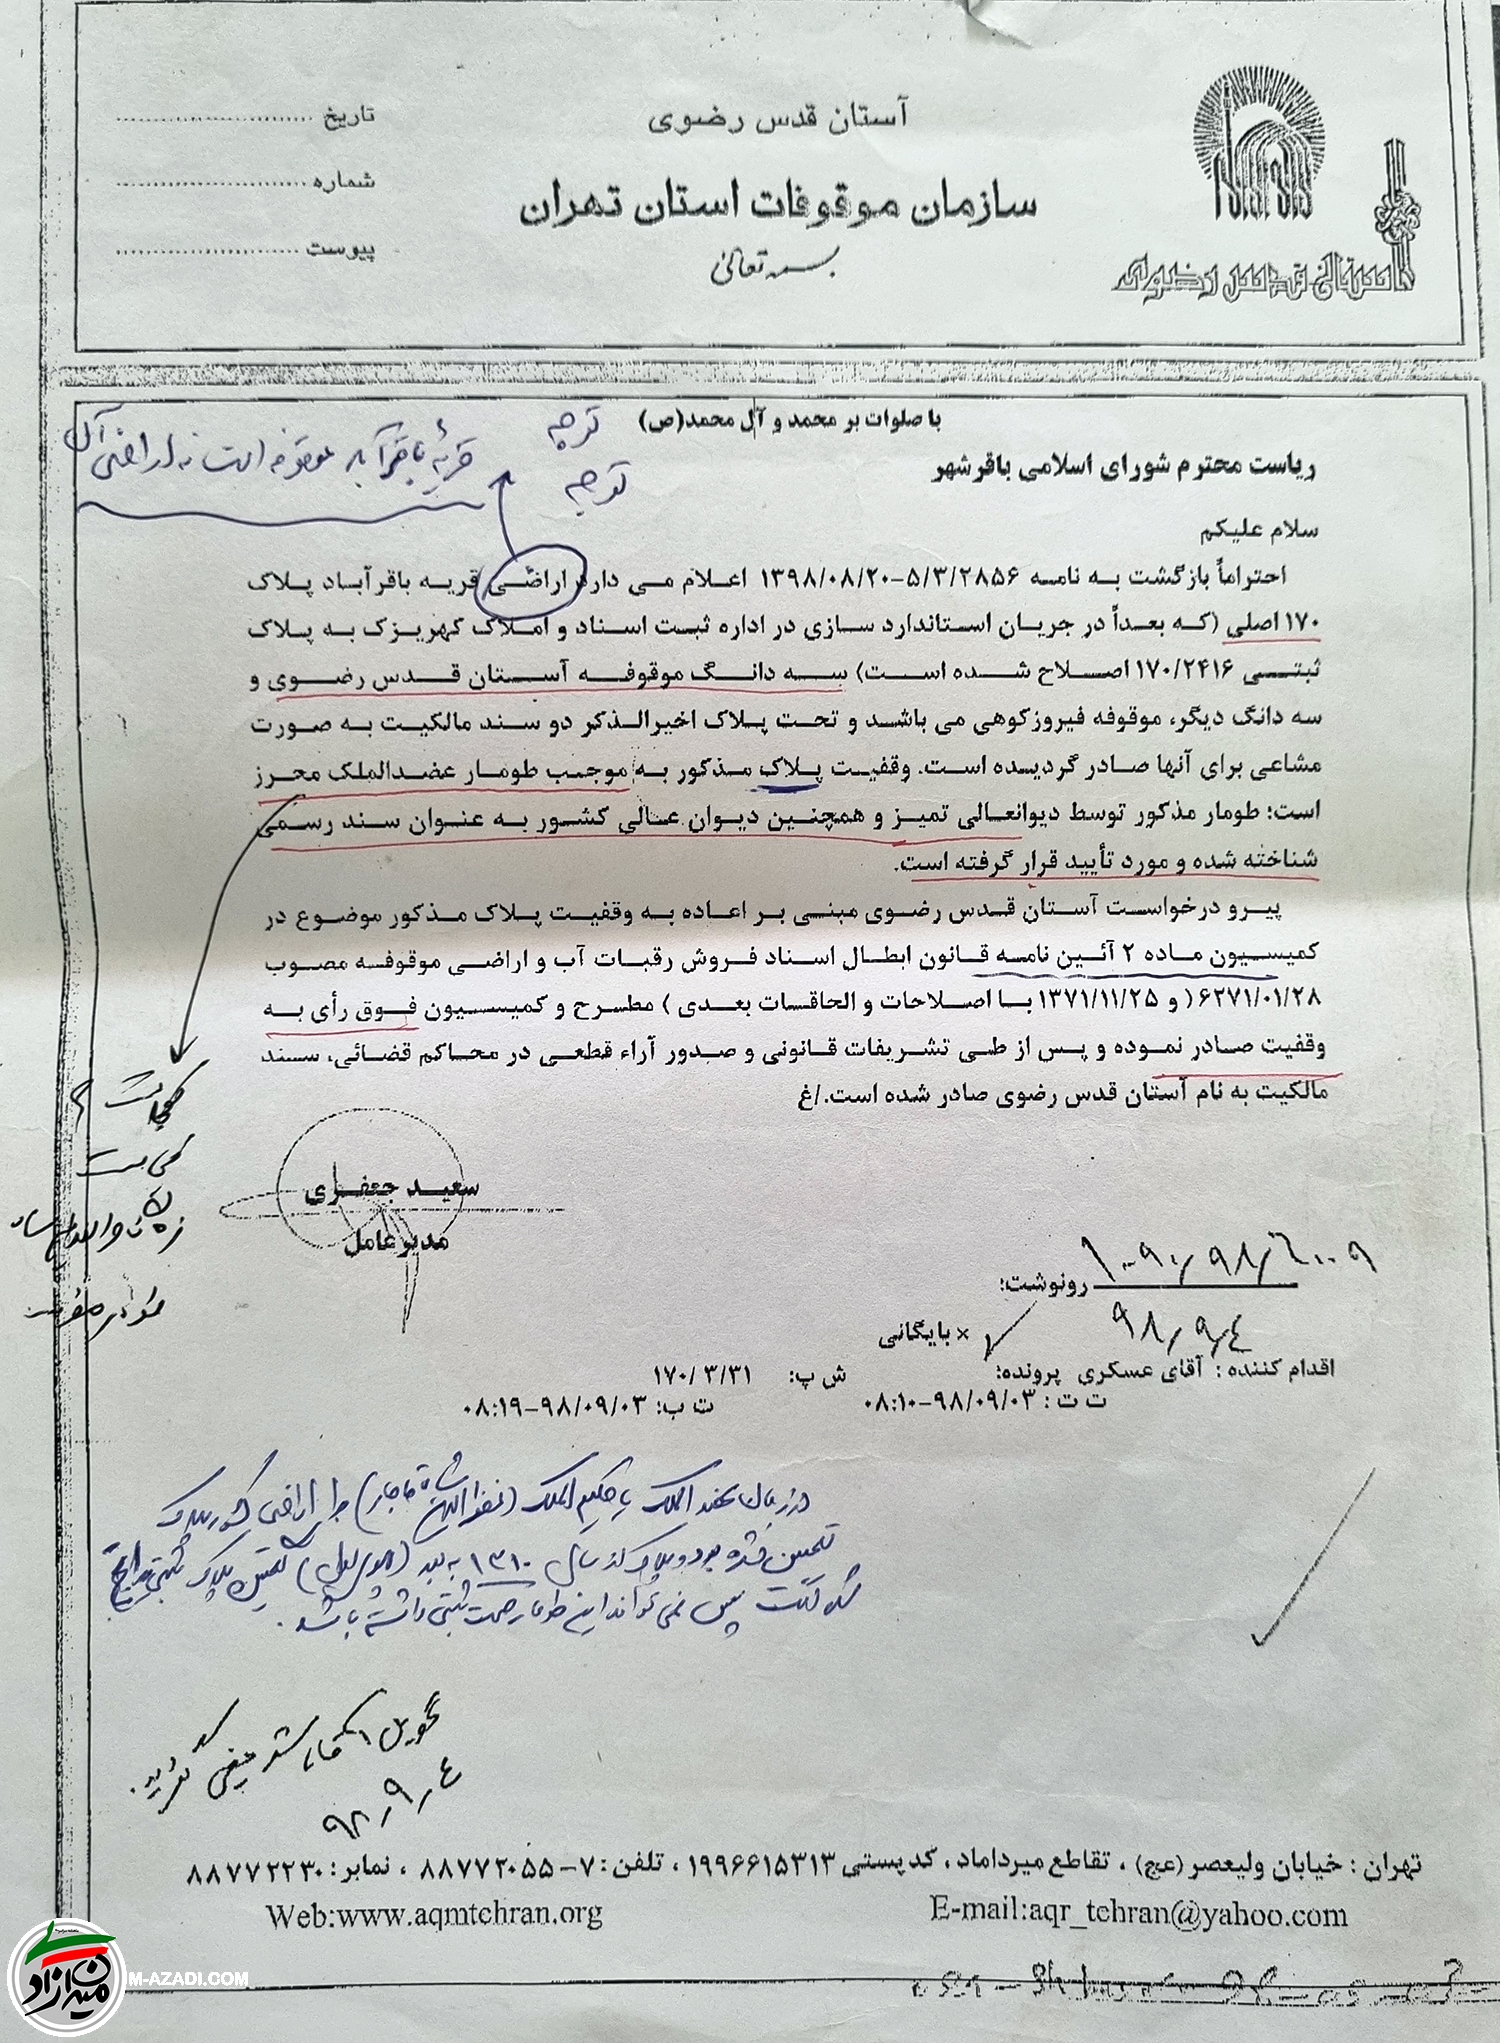 آستان قدس رضوی
سازمان موقوفات استان تهران
بسمه تعالی
تاریخ ..............................
شماره ..............................
پیوست ..............................
آستان قدس رضوی
با صلوات بر محمد و آل محمد(ص)
توجه
توجه
قریهٔ باقرآباد موقوفه است نه اراضی آن
ریاست محترم شورای اسلامی باقرشهر
سلام علیکم
احتراماً بازگشت به نامه ۵/۳/۲۸۵۶-۱۳۹۸/۰۸/۲۰ اعلام می دارد اراضی قریه باقرآباد پلاک
۱۷۰ اصلی (که بعداً در جریان استاندارد سازی در اداره ثبت اسناد و املاک کهریزک به پلاک
ثبتی ۱۷۰/۲۴۱۶ اصلاح شده است) سه دانگ موقوفه آستان قدس رضوی و
سه دانگ دیگر، موقوفه فیروزکوهی می باشد و تحت پلاک اخیرالذکر دو سند مالکیت به صورت
مشاعی برای آنها صادر گردیده است. وقفیت پلاک مذکور به موجب طومار عضدالملک محرز
است؛ طومار مذکور توسط دیوانعالی تمیز و همچنین دیوان عالی کشور به عنوان سند رسمی
شناخته شده و مورد تأیید قرار گرفته است.
پیرو درخواست آستان قدس رضوی مبنی بر اعاده به وقفیت پلاک مذکور موضوع در
کمیسیون ماده ۲ آئین نامه قانون ابطال اسناد فروش رقبات آب و اراضی موقوفه مصوب
۶۲۷۱/۰۱/۲۸( و ۱۳۷۱/۱۱/۲۵ با اصلاحات و الحاقات بعدی ) مطرح و کمیسیون فوق رأی به
وقفیت صادر نموده و پس از طی تشریفات قانونی و صدور آراء قطعی در محاکم قضائی، سند
مالکیت به نام آستان قدس رضوی صادر شده است./غ
کجاست ؟
سعید جعفری
مدیرعامل
رونوشت:
۹۸٫۹٫۴
× بایگانی
اقدام کننده : آقای عسکری پرونده: ش پ: ۱۷۰/۳/۳۱
ت ت : ۹۸/۰۹/۰۳-۰۸:۱۰ ت ب: ۹۸/۰۹/۰۳-۰۸:۱۹
در زمان عضد الملک یا حکیم الملک ( شاه قاجار) اراضی پلاک
نشده بود و پلاک از سال ۱۳۱۰ به بعد ( ) پلاک ثبتی
پس نمی تواند این طومار صحت ثبتی داشته باشد.
تحویل آقای گردید.
۹۸٫۹٫۴
تهران : خیابان ولیعصر (عج) ، تقاطع میرداماد ، کد پستی ۱۹۹۶۶۱۵۳۱۳ ، تلفن : ۷-۸۸۷۷۲۰۵۵ ، نمابر : ۸۸۷۷۲۲۳۰
Web:www.aqmtehran.org E-mail:aqr_tehran@yahoo.com
میزان آزادی
M-AZADI.COM